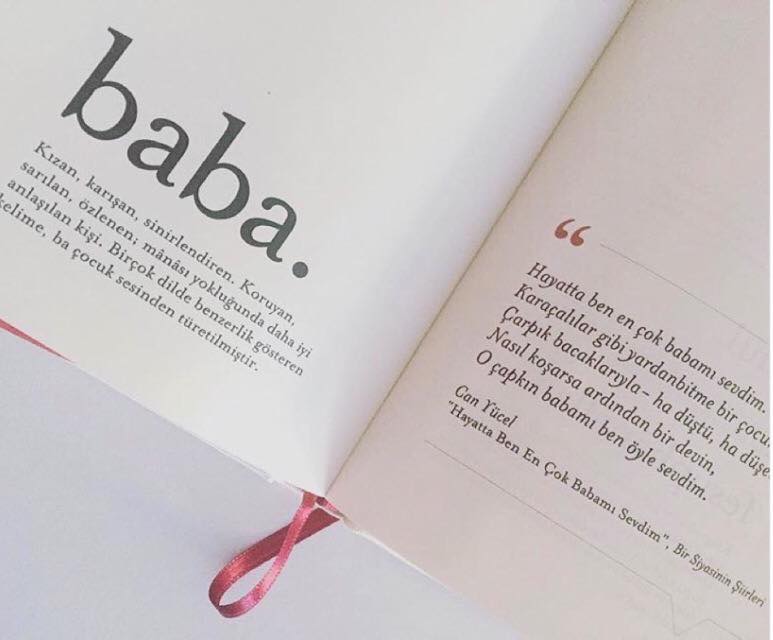 baba.
Kızan, karışan, sinirlendiren. Koruyan,
sarılan, özlenen; mânâsı yokluğunda daha iyi
anlaşılan kişi. Birçok dilde benzerlik gösteren
kelime, ba çocuk sesinden türetilmiştir.
“
Hayatta ben en çok babamı sevdim.
Karaçalılar gibi yardanbitme bir çocu
Çarpık bacaklarıyla – ha düştü, ha düşe
Nasıl koşarsa ardından bir devin,
O çapkın babamı ben öyle sevdim.
Can Yücel
"Hayatta Ben En Çok Babamı Sevdim", Bir Siyasinin Şiirleri